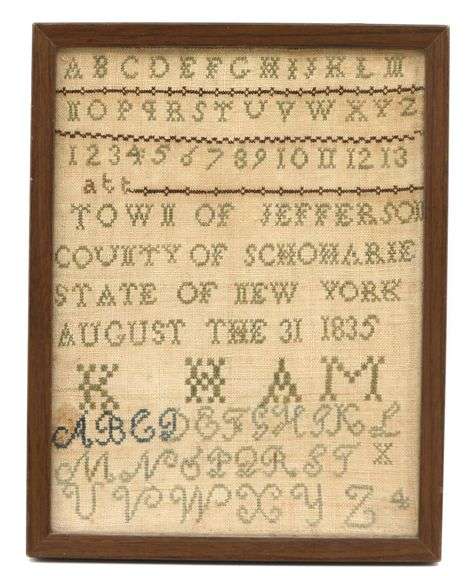 A B C D E F G H I J K L M
N O P Q R S T U V W X Y Z
1 2 3 4 5 6 7 8 9 10 11 12 13
att
TOWN OF JEFFERSON
COUNTY OF SCHOHARIE
STATE OF NEW YORK
AUGUST THE 31 1835
K H A M
A B C D E F G H I K L
M N O P Q R S T X
U V W X Y Z 4